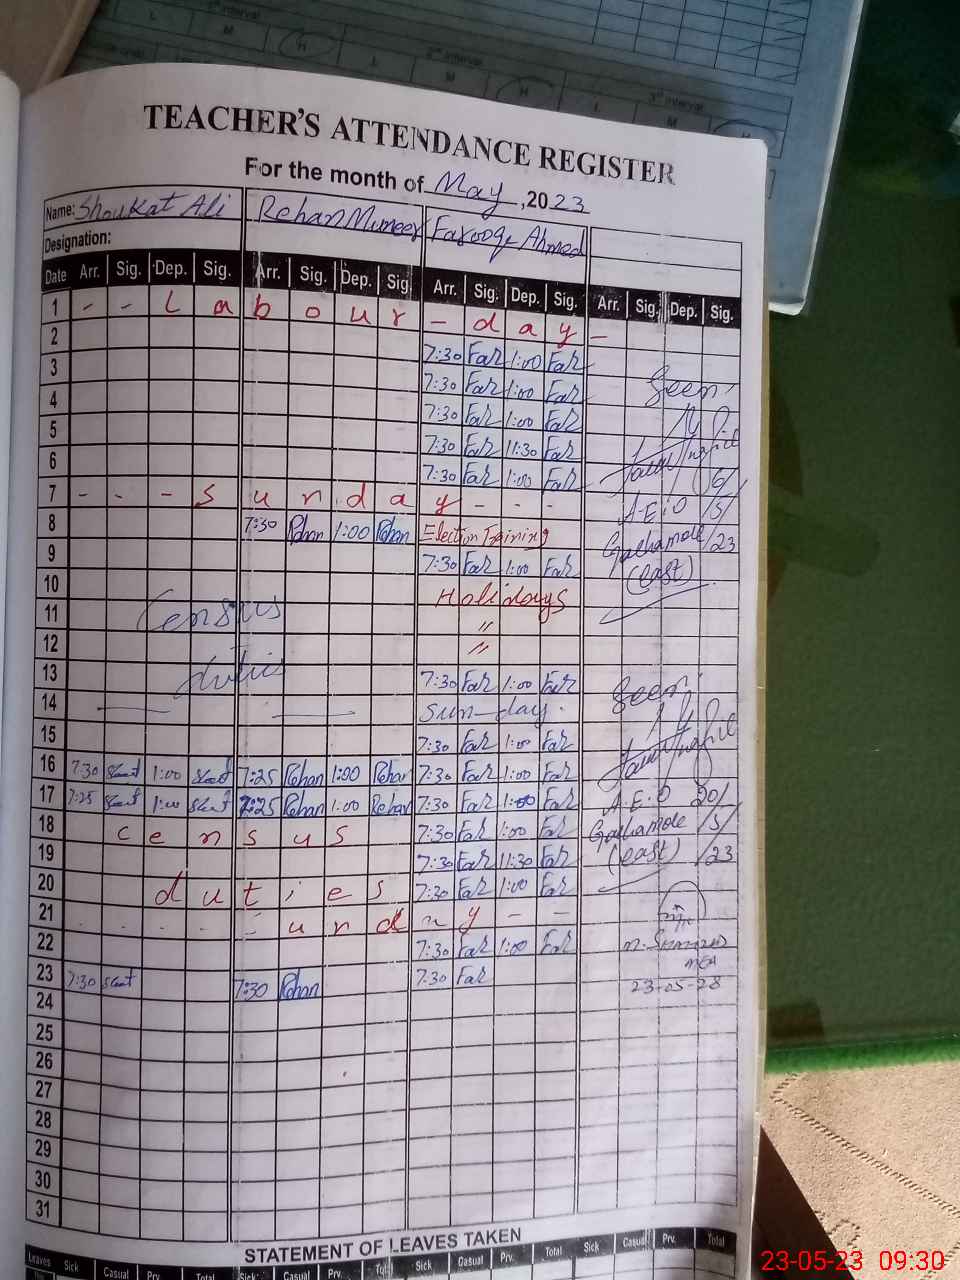 2nd interval
M
H
L
2nd interval
M
H
L
3rd interval
M
TEACHER'S ATTENDANCE REGISTER
For the month of May, 2023
Name: Shoukat Ali Rehan Muneer Farooqe Ahmed
Designation:
Date Arr. Sig. Dep. Sig. Arr. Sig. Dep. Sig. Arr. Sig. Dep. Sig. Arr. Sig. Dep. Sig.
1 - - L a b o u r - d a y -
2 7:30 Far 1:00 Far
3 7:30 Far 1:00 Far
4 7:30 Far 1:00 Far
5 7:30 Far 11:30 Far
6 7:30 Far 1:00 Far
7 - - - s u n d a y - - -
8 7:30 Rehan 1:00 Rehan Election Training
9 7:30 Far 1:00 Far
10 Holidays
11 "
12 "
Census
duties
13 7:30 Far 1:00 Far
14 Sun-day.
15 7:30 Far 1:00 Far
16 7:30 1:00 7:25 Rehan 1:00 Rehan 7:30 Far 1:00 Far
17 7:25 1:00 7:25 Rehan 1:00 Rehan 7:30 Far 1:00 Far
18 c e n s u s 7:30 Far 1:00 Far
19 7:30 Far 11:30 Far
20 d u t i e s 7:30 Far 1:00 Far
21 - - - - s u n d a y - -
22 7:30 Far 1:00 Far
23 7:30 7:30 Rehan 7:30 Far
24
25
26
27
28
29
30
31
Seen.
A.E.O
(east)
16/5/23
Seen.
A.E.O
(east)
20/5/23
MEA
23-05-23
STATEMENT OF LEAVES TAKEN
Leaves Sick Casual Prv. Total Sick Casual Prv. Total Sick Casual Prv. Total Sick Casual Prv. Total
23-05-23 09:30